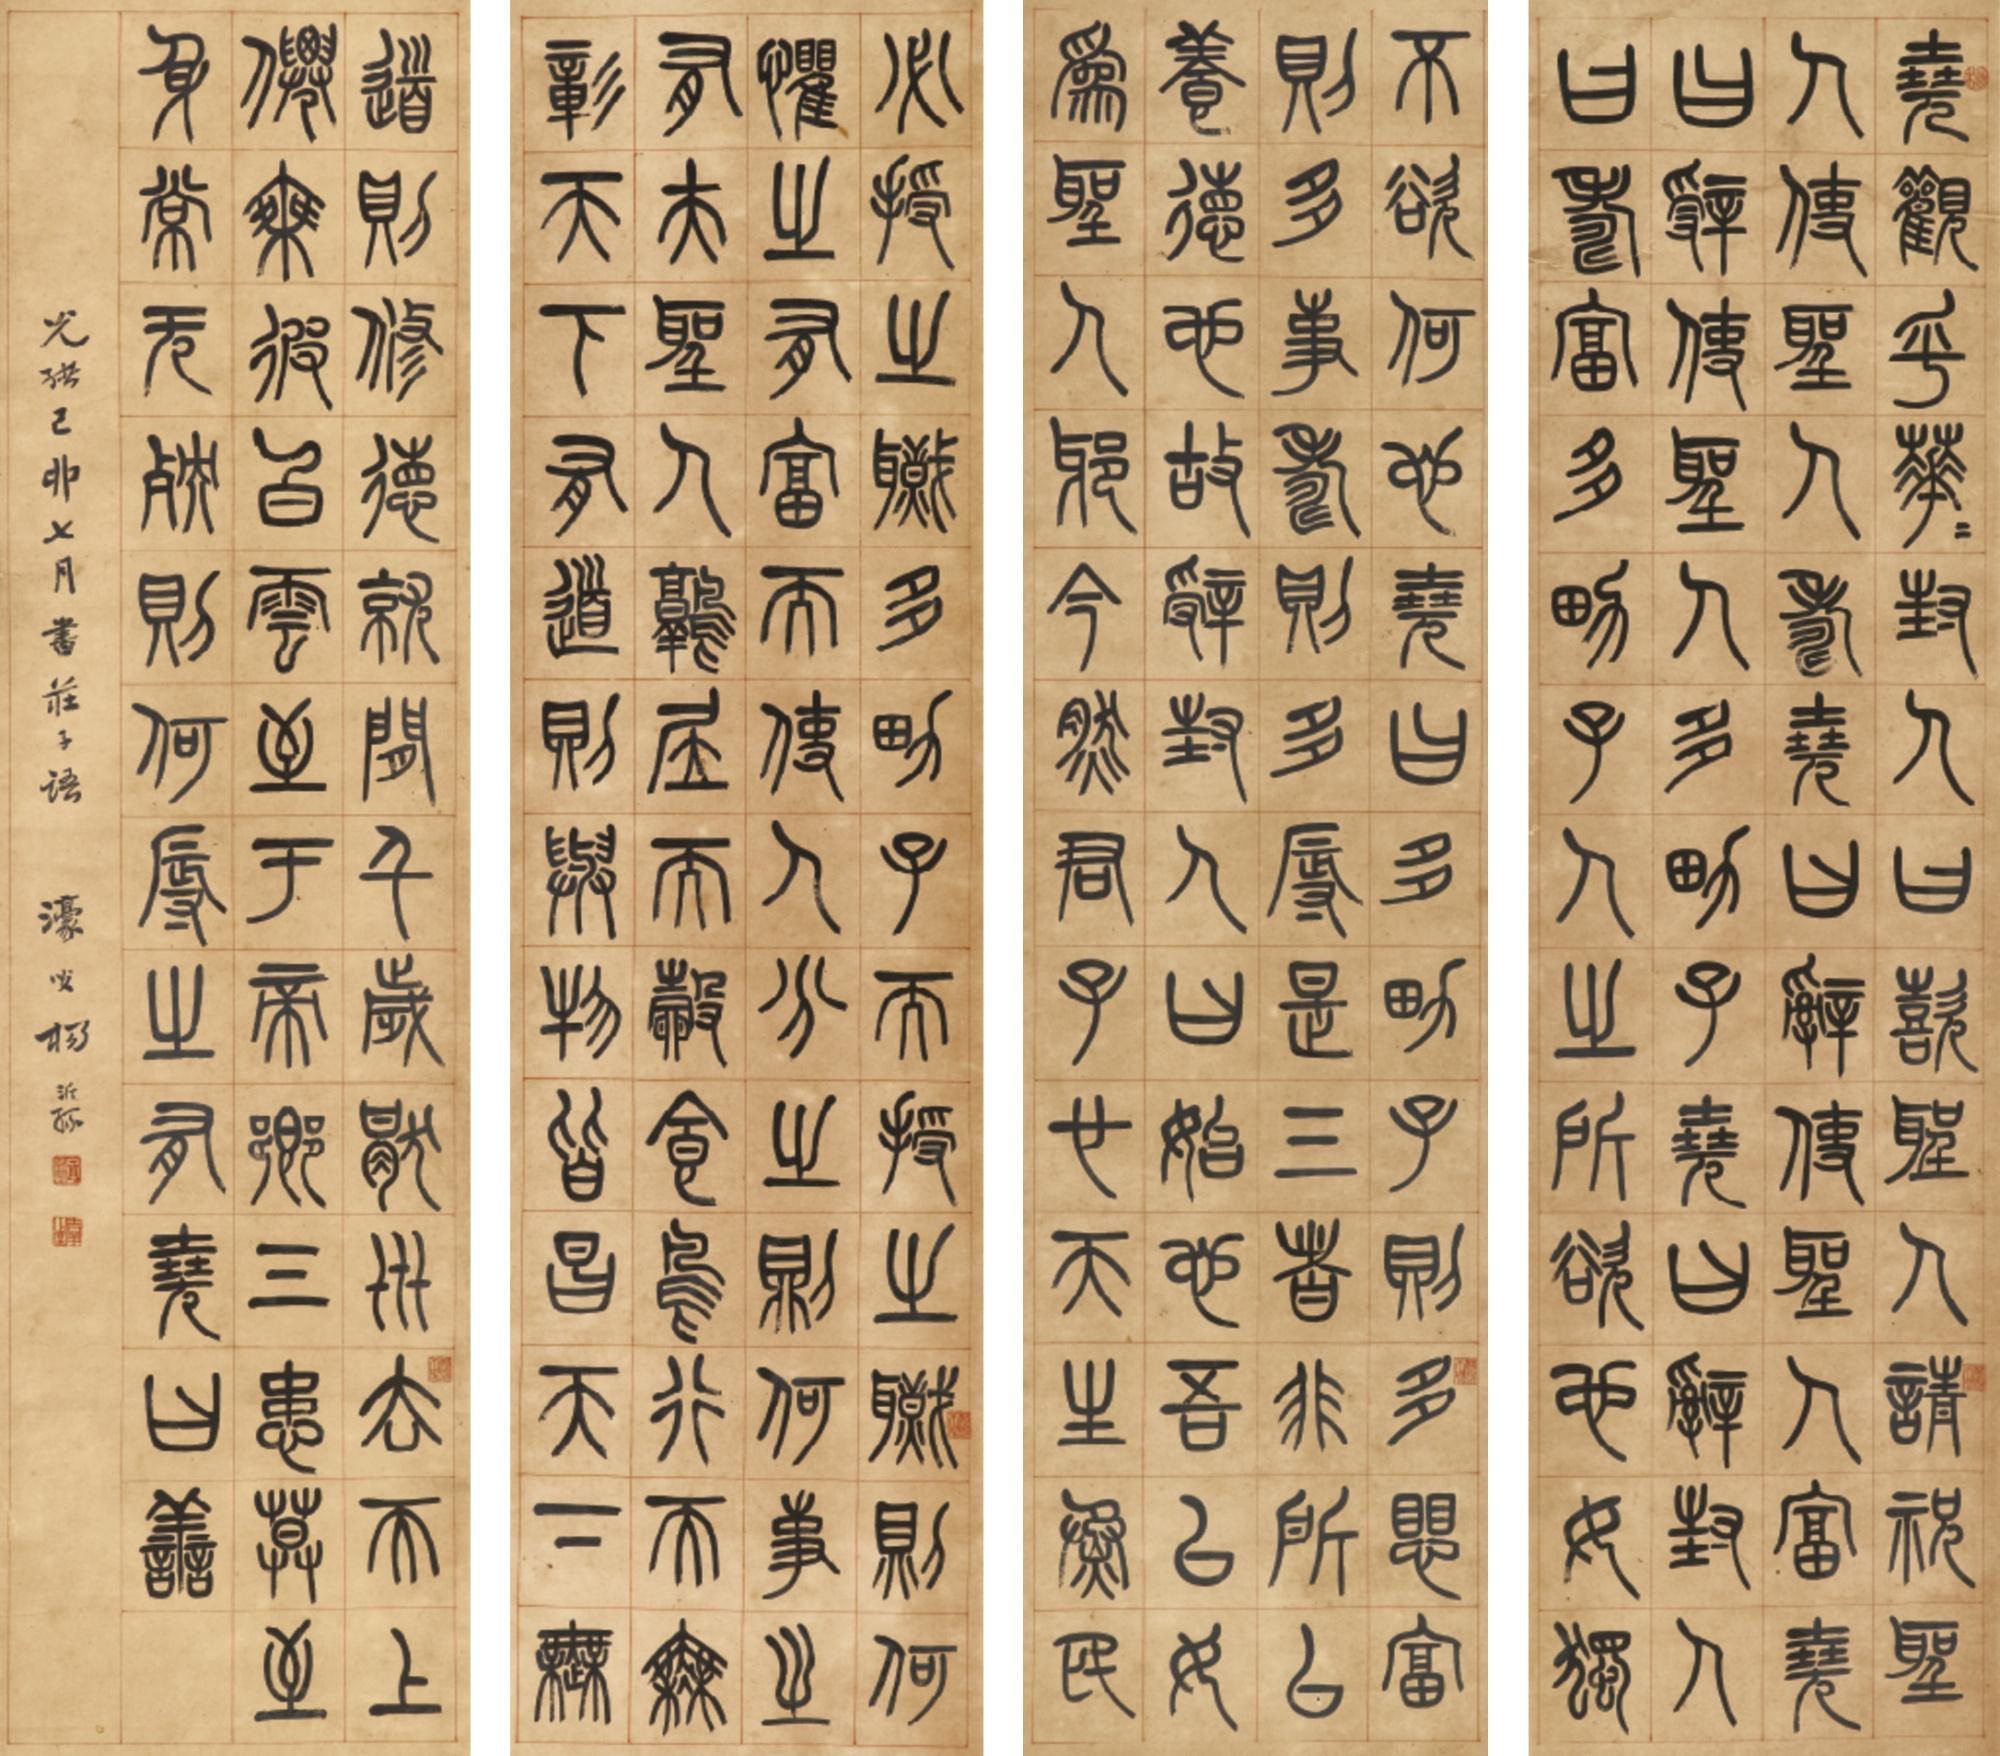 堯觀乎華〻封人曰嘻聖人請祝聖
人使聖人壽堯曰辭使聖人富堯
曰辭使聖人多男子堯曰辭封人
曰壽富多男子人之所欲也女獨
不欲何也堯曰多男子則多懼富
則多事壽則多辱是三者非所以
養德也故辭封人曰始也吾以女
爲聖人邪今然君子也天生萬民
必授之職多男子而授之職則何
懼之有富而使人分之則何事之
有夫聖人鶉居而鷇食鳥行而無
彰天下有道則與物皆昌天下無
道則修德就閒千歲厭世去而上
僊乘彼白雲至于帝鄉三患莫至
身常无殃則何辱之有堯曰善
光緒己卯七月書莊子語 濠叟楊沂孫